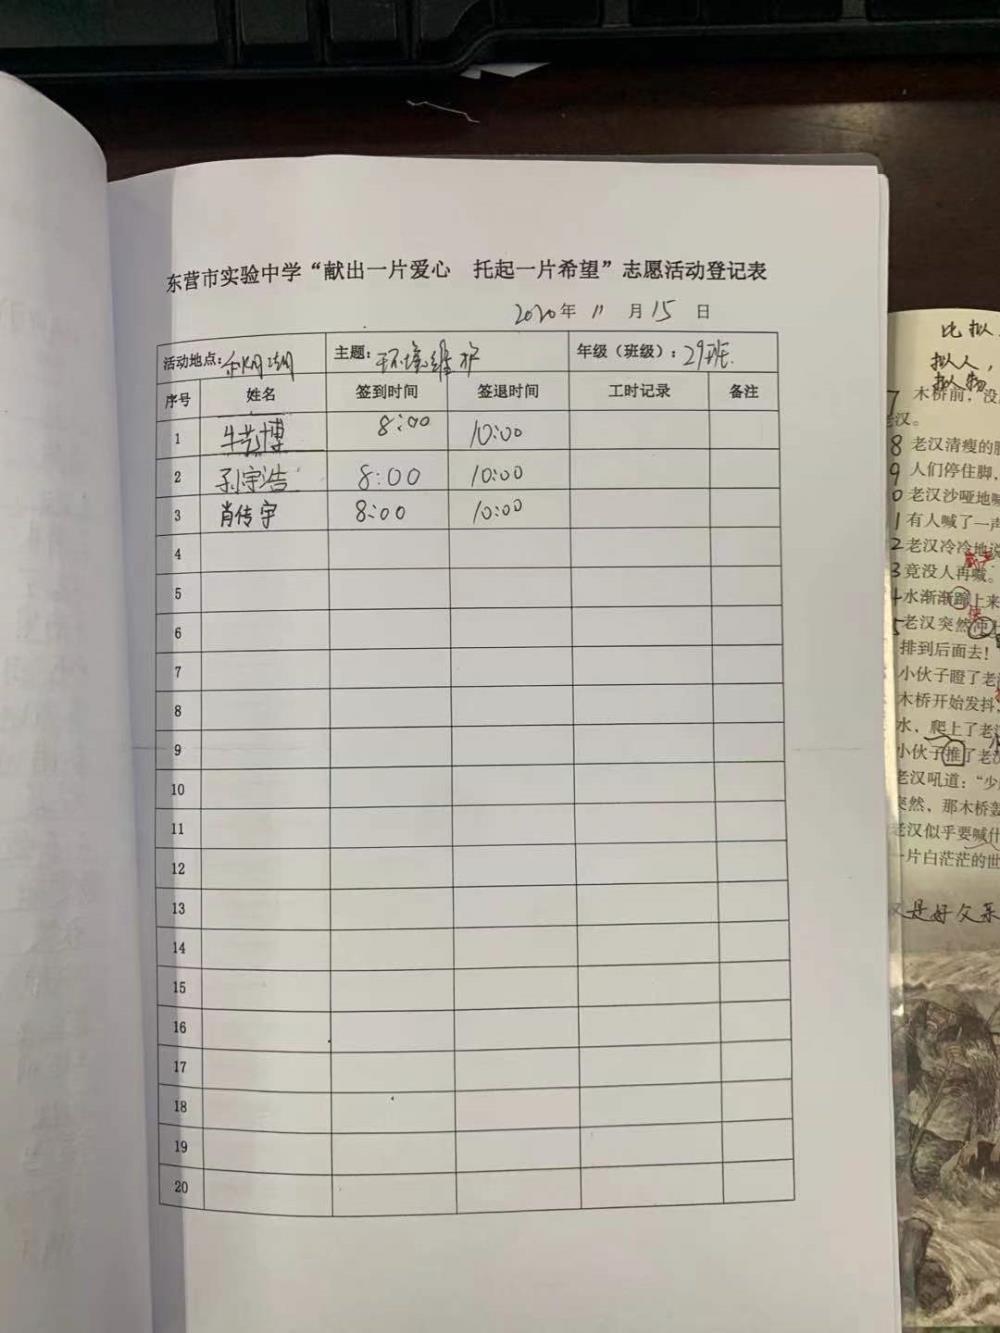 东营市实验中学“献出一片爱心 托起一片希望”志愿活动登记表
2020年 11 月 15 日
活动地点： 主题：环境维护 年级（班级）：29班
序号 姓名 签到时间 签退时间 工时记录 备注
1 牛艺博 8:00 10:00
2 孙宇浩 8:00 10:00
3 肖传宇 8:00 10:00
4
5
6
7
8
9
10
11
12
13
14
15
16
17
18
19
20
比拟
拟人，
拟物
7 木桥前，没
老汉。
8 老汉清瘦的
9 人们停住脚，
0 老汉沙哑地喊
1 有人喊了一声
2 老汉冷冷地说
3 竟没人再喊。
4 水渐渐蹿上来
5 老汉突然冲
排到后面去！
小伙子瞪了老
木桥开始发抖，
水，爬上了老
小伙子推了老汉
老汉吼道：“少
突然，那木桥轰
老汉似乎要喊什
一片白茫茫的世
汉是好父亲